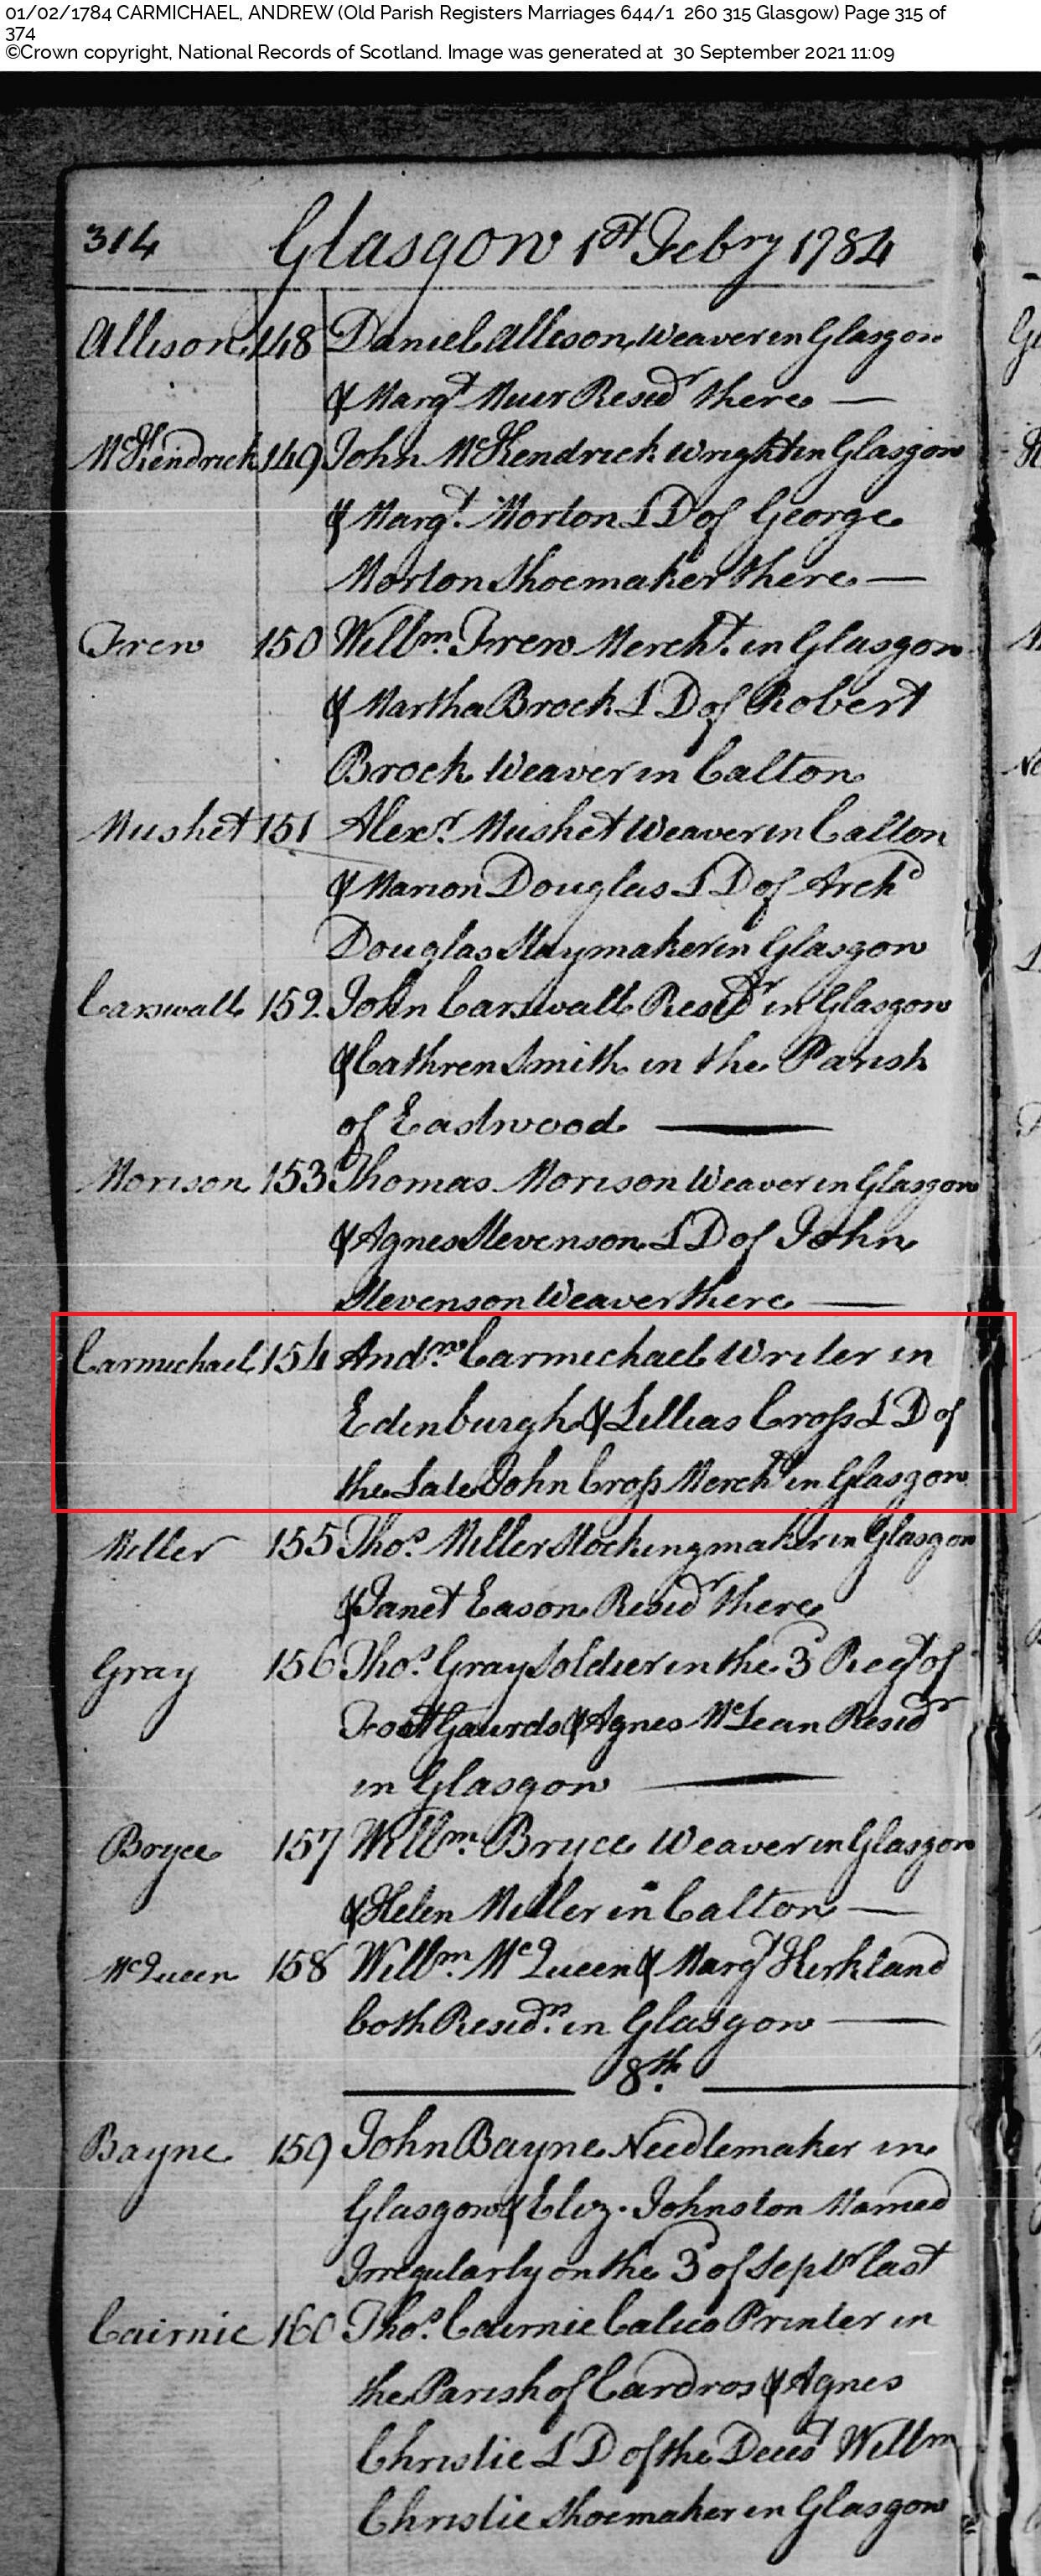 01/02/1784 CARMICHAEL, ANDREW (Old Parish Registers Marriages 644/1 260 315 Glasgow) Page 315 of
374
©Crown copyright, National Records of Scotland. Image was generated at 30 September 2021 11:09
314 Glasgow 1st Febry 1784
Allison 148 Daniel Allison Weaver in Glasgow
& Margt Muir Residr there —
McKendrick 149 John McKendrick Wright in Glasgow
& Margt. Morton L D of George
Morton Shoemaker there —
Frew 150 Willm. Frew Mercht. in Glasgow
& Martha Brock L D of Robert
Brock Weaver in Calton
Mushet 151 Alexr. Mushet Weaver in Calton
& Marion Douglas L D of Archd
Douglas Staymaker in Glasgow
Carswall 152 John Carswall Residr in Glasgow
& Cathren Smith in the Parish
of Eastwood —
Morison 153 Thomas Morison Weaver in Glasgow
& Agnes Stevenson L D of John
Stevenson Weaver there —
Carmichael 154 Andrw. Carmichael Writer in
Edinburgh & Lillias Cross L D of
the Late John Cross Mercht in Glasgow
Miller 155 Thos. Miller Stockingmaker in Glasgow
& Janet Eason Residr there
Gray 156 Thos. Gray Soldier in the 3d Regt of
Foot Gaurds & Agnes McLean Residr
in Glasgow —
Bryce 157 Willm. Bryce Weaver in Glasgow
& Helen Miller in Calton —
McQueen 158 Willm. McQueen & Margt Kirkland
both Residrs. in Glasgow —
8th.
Bayne 159 John Bayne Needlemaker in
Glasgow & Eliz. Johnston Married
Irregularly on the 3d of Septr last
Cairnie 160 Thos. Cairnie Calico Printer in
the Parish of Cardros & Agnes
Christie L D of the Deceast Willm
Christie Shoemaker in Glasgow